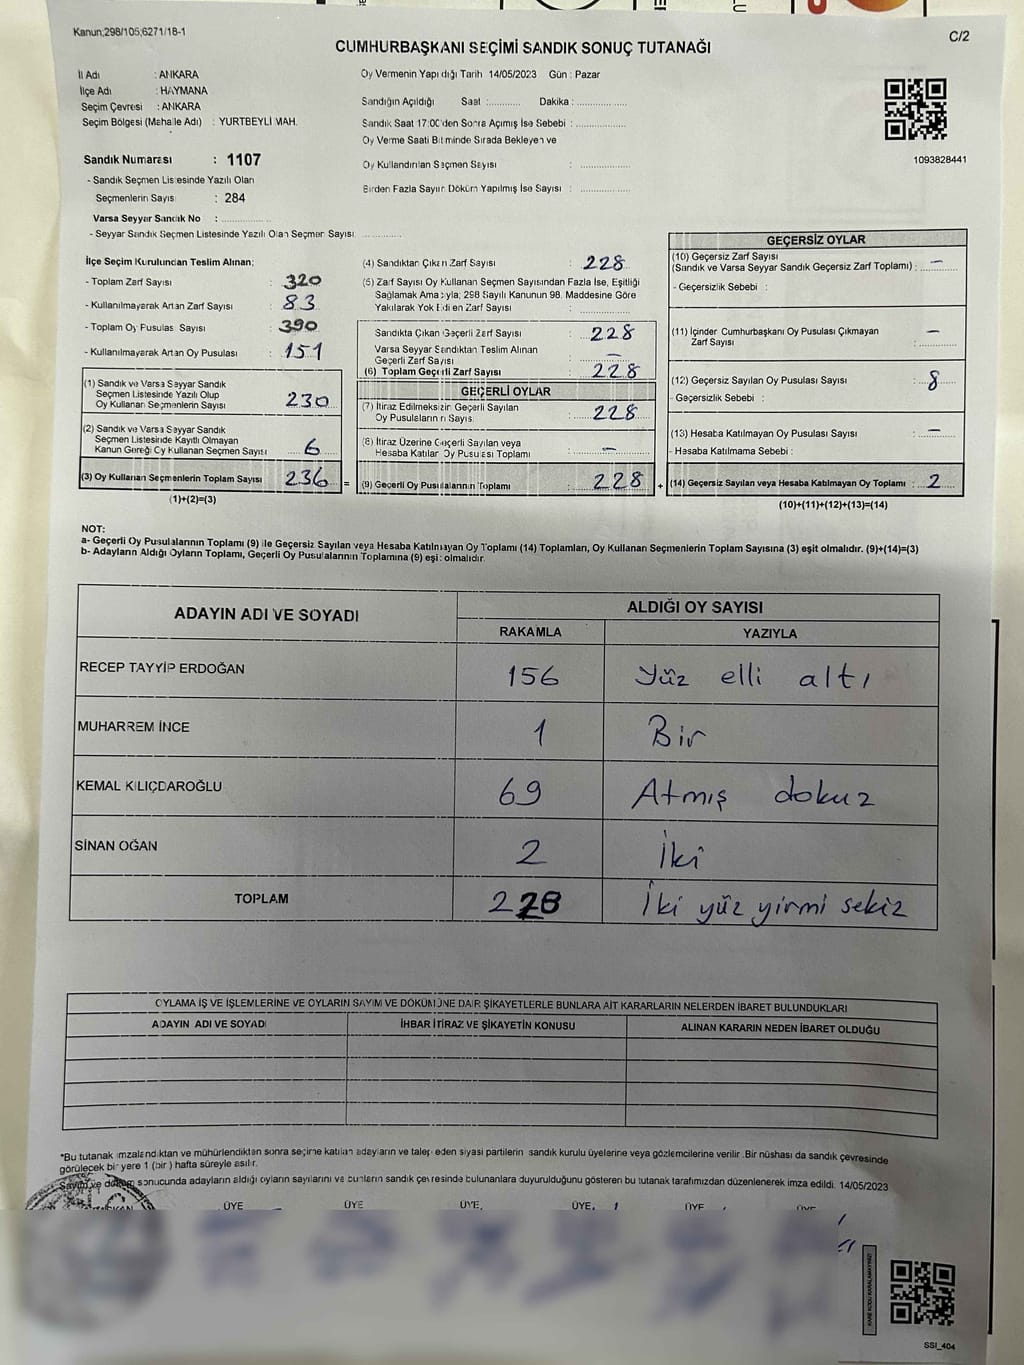 Kanun;298/105;6271/18-1
C/2
CUMHURBAŞKANI SEÇİMİ SANDIK SONUÇ TUTANAĞI
İl Adı : ANKARA
İlçe Adı : HAYMANA
Seçim Çevresi : ANKARA
Seçim Bölgesi (Mahalle Adı) : YURTBEYLİ MAH.
Sandık Numarası : 1107
- Sandık Seçmen Listesinde Yazılı Olan
Seçmenlerin Sayısı : 284
Varsa Seyyar Sandık No : ..............
- Seyyar Sandık Seçmen Listesinde Yazılı Olan Seçmen Sayısı: ............
Oy Vermenin Yapıldığı Tarih 14/05/2023 Gün : Pazar
Sandığın Açıldığı Saat :............ Dakika : ..................
Sandık Saat 17:00'den Sonra Açımış İse Sebebi : ..................
Oy Verme Saati Bitiminde Sırada Bekleyen ve
Oy Kullandırılan Seçmen Sayısı : ..................
Birden Fazla Sayım Döküm Yapılmış İse Sayısı : ..................
1093828441
İlçe Seçim Kurulundan Teslim Alınan;
- Toplam Zarf Sayısı : 320
- Kullanılmayarak Artan Zarf Sayısı : 83
- Toplam Oy Pusulası Sayısı : 390
- Kullanılmayarak Artan Oy Pusulası : 151
(1) Sandık ve Varsa Seyyar Sandık
Seçmen Listesinde Yazılı Olup
Oy Kullanan Seçmenlerin Sayısı : 230
(2) Sandık ve Varsa Seyyar Sandık
Seçmen Listesinde Kayıtlı Olmayan
Kanun Gereği Oy Kullanan Seçmen Sayısı : 6
(3) Oy Kullanan Seçmenlerin Toplam Sayısı : 236 =
(1)+(2)=(3)
(4) Sandıktan Çıkan Zarf Sayısı : 228
(5) Zarf Sayısı Oy Kullanan Seçmen Sayısından Fazla İse, Eşitliği
Sağlamak Amacıyla; 298 Sayılı Kanunun 98. Maddesine Göre
Yakılarak Yok Edilen Zarf Sayısı : ..................
Sandıkta Çıkan Geçerli Zarf Sayısı : 228
Varsa Seyyar Sandıktan Teslim Alınan
Geçerli Zarf Sayısı : —
(6) Toplam Geçerli Zarf Sayısı : 228
GEÇERLİ OYLAR
(7) İtiraz Edilmeksizin Geçerli Sayılan
Oy Pusulalarının Sayısı : 228
(8) İtiraz Üzerine Geçerli Sayılan veya
Hesaba Katılan Oy Pusulası Toplamı : —
(9) Geçerli Oy Pusulalarının Toplamı : 228 +
GEÇERSİZ OYLAR
(10) Geçersiz Zarf Sayısı
(Sandık ve Varsa Seyyar Sandık Geçersiz Zarf Toplamı) : —
- Geçersizlik Sebebi :
(11) İçinder Cumhurbaşkanı Oy Pusulası Çıkmayan
Zarf Sayısı : —
(12) Geçersiz Sayılan Oy Pusulası Sayısı : 8
- Geçersizlik Sebebi :
(13) Hesaba Katılmayan Oy Pusulası Sayısı : —
- Hesaba Katılmama Sebebi :
(14) Geçersiz Sayılan veya Hesaba Katılmayan Oy Toplamı : 2
(10)+(11)+(12)+(13)=(14)
NOT:
a- Geçerli Oy Pusulalarının Toplamı (9) ile Geçersiz Sayılan veya Hesaba Katılmayan Oy Toplamı (14) Toplamları, Oy Kullanan Seçmenlerin Toplam Sayısına (3) eşit olmalıdır. (9)+(14)=(3)
b- Adayların Aldığı Oyların Toplamı, Geçerli Oy Pusulalarının Toplamına (9) eşit olmalıdır.
ADAYIN ADI VE SOYADI
ALDIĞI OY SAYISI
RAKAMLA YAZIYLA
RECEP TAYYİP ERDOĞAN 156 Yüz elli altı
MUHARREM İNCE 1 Bir
KEMAL KILIÇDAROĞLU 69 Atmış dokuz
SİNAN OĞAN 2 İki
TOPLAM 228 İki yüz yirmi sekiz
OYLAMA İŞ VE İŞLEMLERİNE VE OYLARIN SAYIM VE DÖKÜMÜNE DAİR ŞİKAYETLERLE BUNLARA AİT KARARLARIN NELERDEN İBARET BULUNDUKLARI
ADAYIN ADI VE SOYADI İHBAR İTİRAZ VE ŞİKAYETİN KONUSU ALINAN KARARIN NEDEN İBARET OLDUĞU
*Bu tutanak imzalandıktan ve mühürlendikten sonra seçime katılan adayların ve talep eden siyasi partilerin sandık kurulu üyelerine veya gözlemcilerine verilir. Bir nüshası da sandık çevresinde
görülecek bir yere 1 (bir) hafta süreyle asılır.
Sayım ve döküm sonucunda adayların aldığı oyların sayılarını ve bunların sandık çevresinde bulunanlara duyurulduğunu gösteren bu tutanak tarafımızdan düzenlenerek imza edildi. 14/05/2023
ÜYE ÜYE ÜYE, ÜYE, ÜYE
KARE KODU KARALAMAYINIZ!
SSI_404